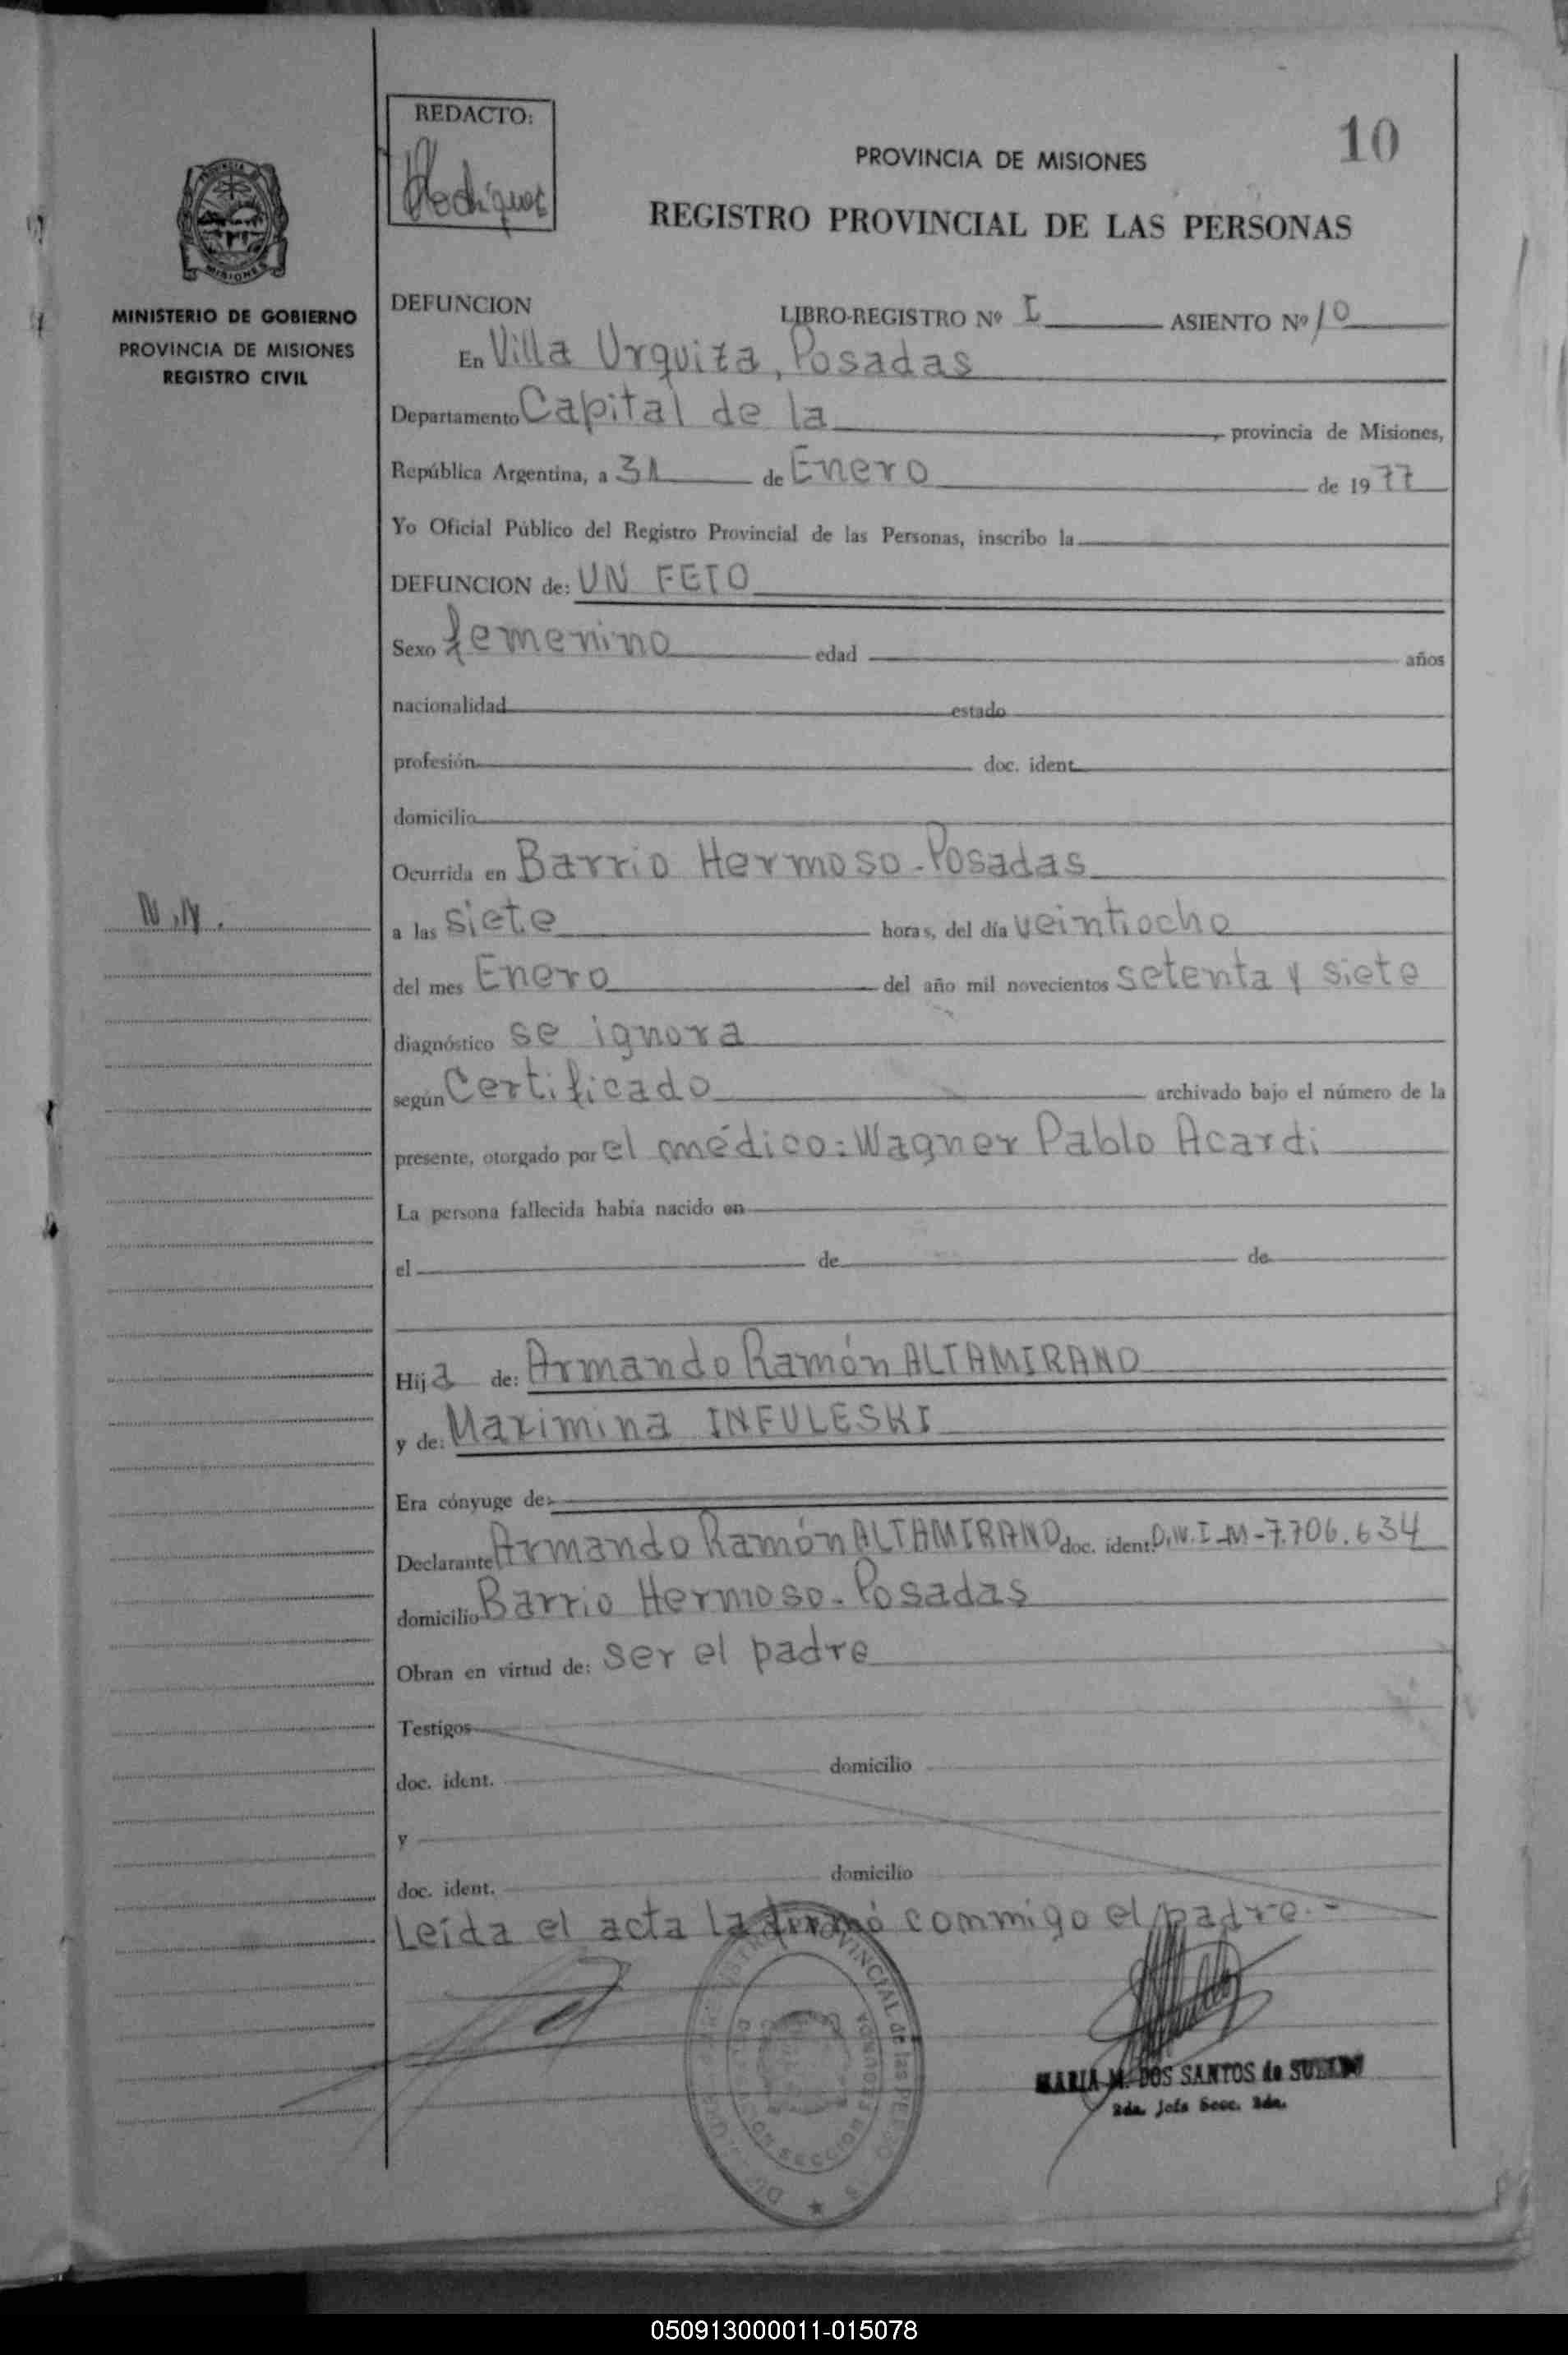 REDACTO:
10
PROVINCIA DE MISIONES
REGISTRO PROVINCIAL DE LAS PERSONAS
MISIONES
MINISTERIO DE GOBIERNO
PROVINCIA DE MISIONES
REGISTRO CIVIL
DEFUNCION LIBRO-REGISTRO Nº I ASIENTO Nº 10
En Villa Urquiza, Posadas
Departamento Capital de la , provincia de Misiones,
República Argentina, a 31 de Enero de 1977
Yo Oficial Público del Registro Provincial de las Personas, inscribo la
DEFUNCION de: UN FETO
Sexo femenino edad años
nacionalidad estado
profesión doc. ident.
domicilio
Ocurrida en Barrio Hermoso - Posadas
N.N.
a las siete horas, del día veintiocho
del mes Enero del año mil novecientos setenta y siete
diagnóstico se ignora
según Certificado archivado bajo el número de la
presente, otorgado por el médico: Wagner Pablo Acardi
La persona fallecida había nacido en
el de de
Hija de: Armando Ramón ALTAMIRANO
y de: Maximina INFULESKI
Era cónyuge de:
Declarante Armando Ramón ALTAMIRANO doc. ident. D.N.I-M-7.706.634
domicilio Barrio Hermoso - Posadas
Obran en virtud de: ser el padre
Testigos
doc. ident. domicilio
y
doc. ident. domicilio
Leída el acta la firmó commigo el padre.-
PROVINCIAL de las
MARIA M. DOS SANTOS de
2da. Jefa Secc. 2da.
050913000011-015078